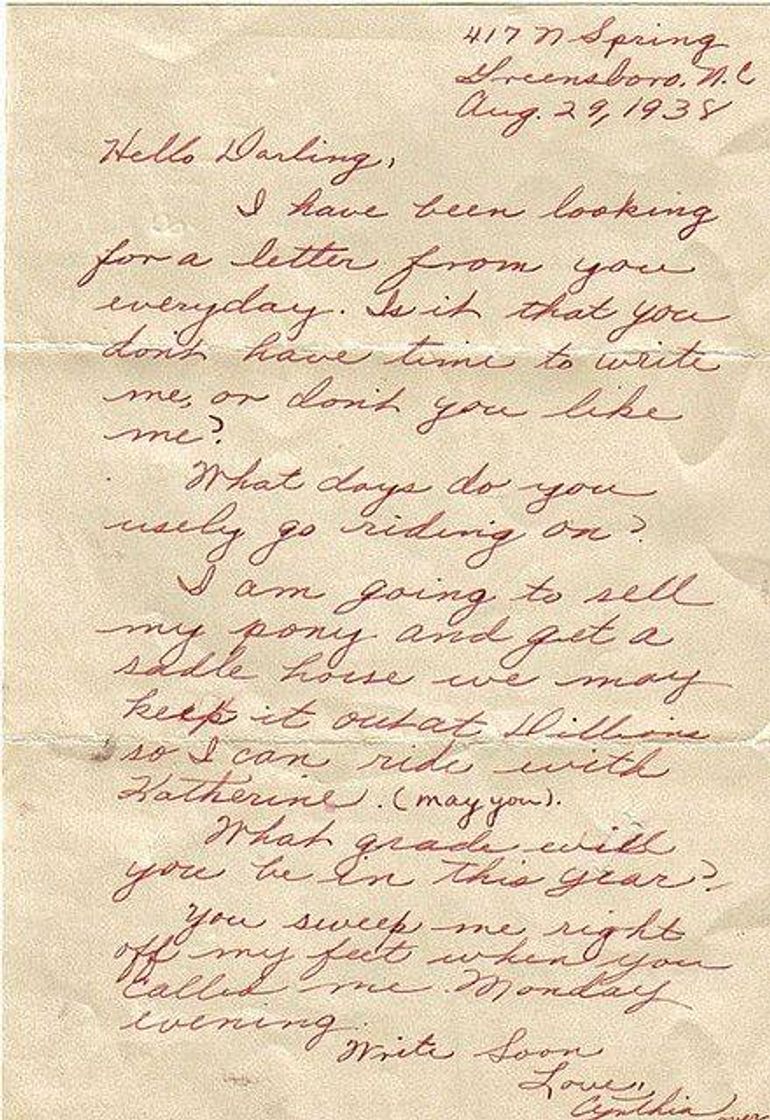 417 N Spring
Greensboro. N.C
Aug. 29, 1938
Hello Darling,
I have been looking
for a letter from you
everyday. Is it that you
don't have time to write
me, or don't you like
me?
What days do you
usely go riding on?
I am going to sell
my pony and get a
sadle horse we may
keep it out at Dillions
so I can ride with
Katherine. (may you).
What grade will
you be in this year?
You sweep me right
off my feet when you
called me Monday
evening.
Write Soon
Love,
Cynthia
over